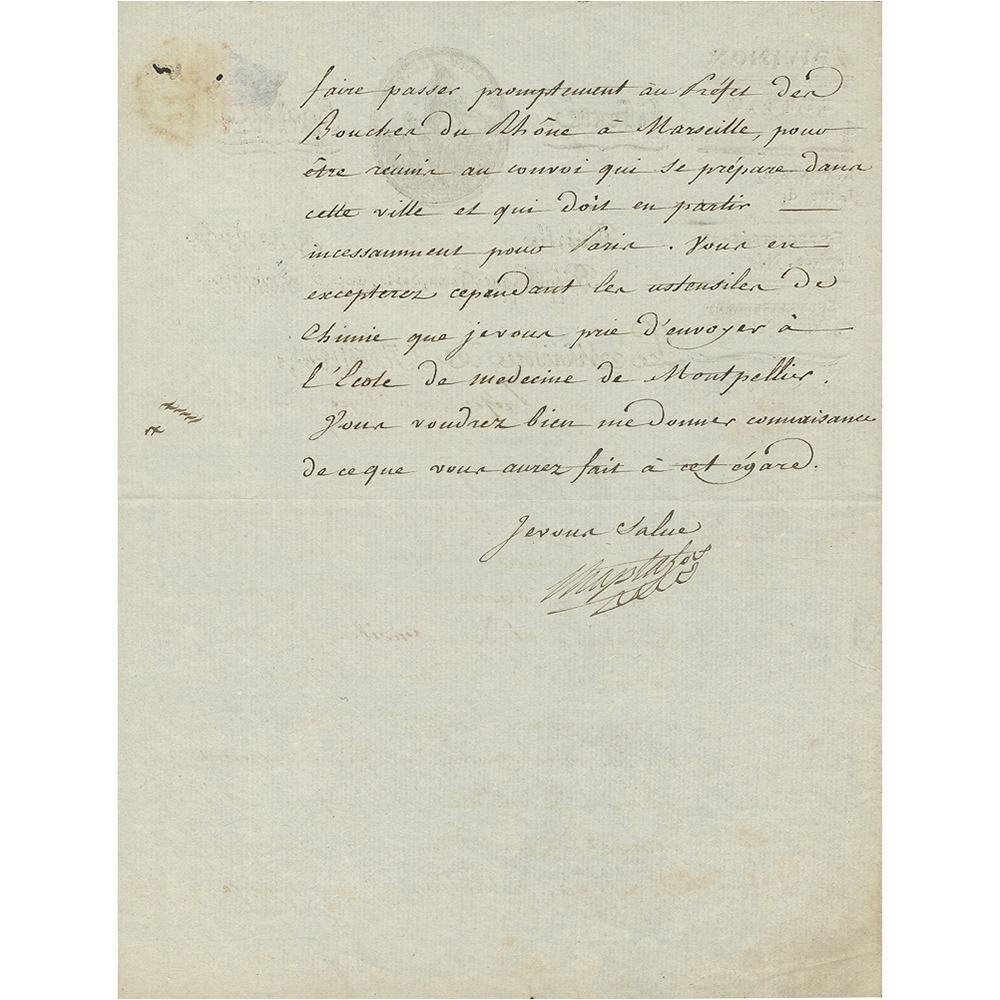 faire passer promptement au Préfet des
Bouches du Rhône à Marseille, pour
être réunis au convoi qui se prépare dans
cette ville et qui doit en partir
incessamment pour Paris. Vous en
excepterez cependant les ustensiles de
Chimie que je vous prie d'envoyer à
l'École de medecine de Montpellier.
Vous voudrez bien me donner connaisance
de ce que vous aurez fait à cet égard.
Je vous Salue
DIVISION